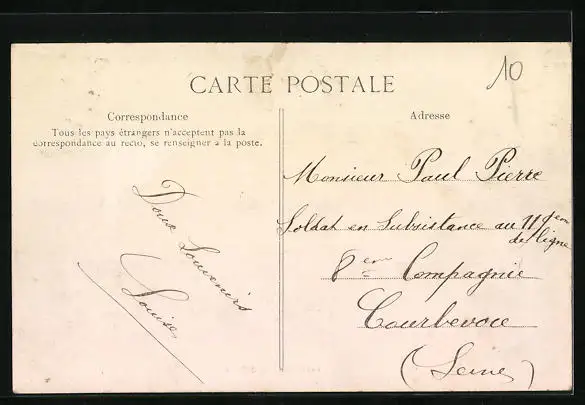 CARTE POSTALE
10
Correspondance
Tous les pays étrangers n'acceptent pas la
correspondance au recto, se renseigner à la poste.
Doux Souvenirs
Louise
Adresse
Monsieur Paul Pierre
Soldat en Subsistance au
de ligne
8eme Compagnie
Courbevoie
(Seine)